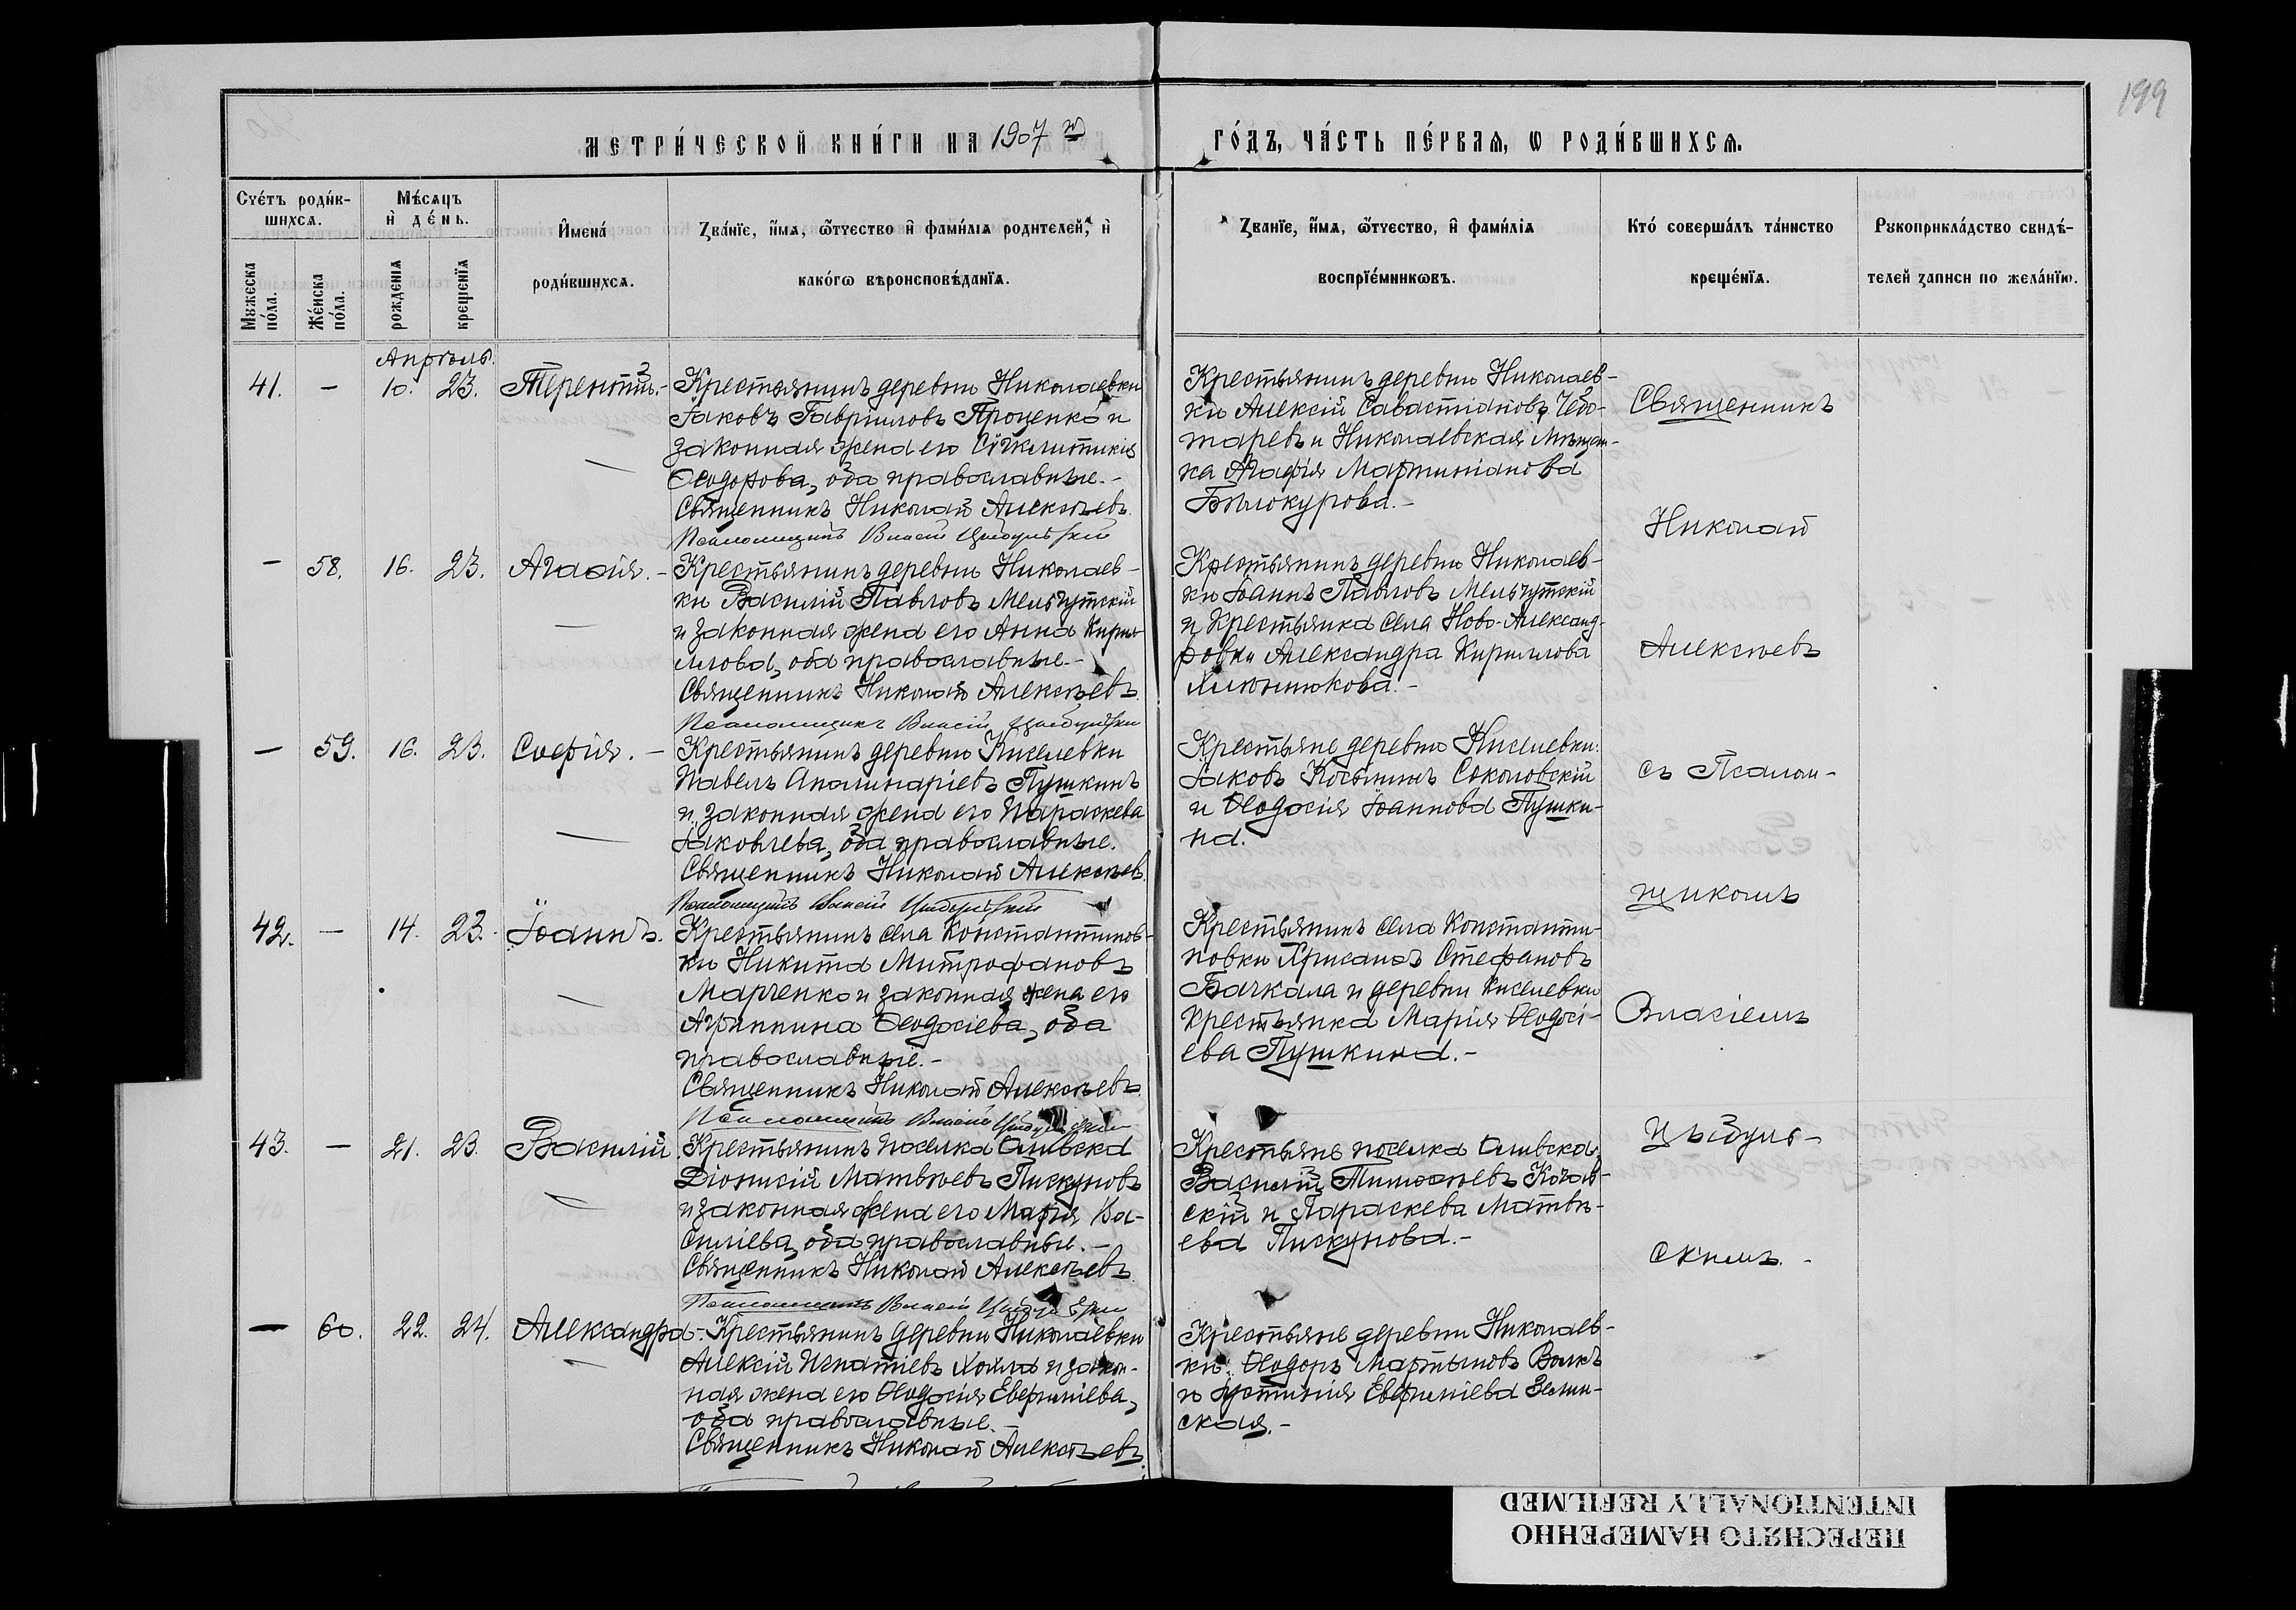 199
МЕТРИ́ЧЕСКОЙ КНИ́ГИ НА 1907 й
ГО́ДЪ, ЧА́СТЬ ПЕ́РВАѦ, Ѡ РОДИ́ВШИХСѦ.
Сче́тъ роди́в-
шихсѧ.
Мꙋжеска по́ла.
Же́нска по́ла.
Мѣ́сѧцъ
и҆ де́нь.
рожденіѧ
крещенїѧ
И҆мена́
роди́вшихсѧ.
Зва́нїе, и҆́мѧ, ѻ҆́тчество и҆ фами́лїѧ родителей, и҆
како́гѡ вѣроисповѣ́данїѧ.
Зва́нїе, и҆́мѧ, ѻ҆́тчество, и҆ фами́лїѧ
воспрїе́мникѡвъ.
Кто́ соверша́лъ та́инство
креще́нїѧ.
Рꙋкоприкла́дство свидѣ́-
телей записи по жела́нїю.
Апрѣль.
41. — 10. 23. Терентій. -
Крестьянинъ деревни Николаевки
Іаковъ Гавріиловъ Проценко и
законная жена его Сѵнклитикія
Ѳеодорова, оба православные. -
Священникъ Николай Алексѣевъ
Псаломщикъ Власій Цыбульскій
Крестьянинъ деревни Николаев-
ки Алексій Савастіановъ Чебо-
таревъ и Николаевская мѣщан-
ка Агафія Мартиніанова
Бѣлокурова. -
— 58. 16. 23. Агаѳія. -
Крестьянинъ деревни Николаев-
ки Василій Павловъ Мельгутскій
и законная жена его Анна Кирил-
лова, оба православные. -
Священникъ Николай Алексѣевъ
Псаломщикъ Власій Цыбульскій
Крестьянинъ деревни Николаев-
ки Іоаннъ Павловъ Мельгутскій
и Крестьянка села Ново-Александ-
ровки Александра Кириллова
— 59. 16. 23. Софія. -
Крестьянинъ деревни Киселевки
Павелъ Аполинаріевъ Пушкинъ
и законная жена его Параскева
Іаковлева, оба православные.
Священникъ Николай Алексѣевъ
Псаломщикъ Власій Цыбульскій
Крестьяне деревни Киселевки:
Іаковъ Косьминъ Соколовскій
и Ѳеодосія Іоаннова Пушки-
на.
42. — 14. 23. Іоаннъ.
Крестьянинъ села Константинов-
ки Никита Митрофановъ
Марченко и законная жена его
Агриппина Ѳеодосіева, оба
православные. -
Священникъ Николай Алексѣевъ
Псаломщикъ Власій Цыбульскій
Крестьянинъ села Константи-
новки Хрисанѳъ Стефановъ
Бачкала и деревни Киселевки
Крестьянка Марія Ѳеодосі-
ева Пушкина. -
43. — 21. 23. Василій.
Крестьянинъ поселка Оливска
Діонисій Матвѣевъ Пискуновъ
и законная жена его Марія Ва-
силіева, оба православные. -
Священникъ Николай Алексѣевъ
Псаломщикъ Власій Цыбульскій
Крестьяне поселка Оливска:
Василій Тимоѳѣевъ
скій и Параскева Матвѣ-
ева Пискунова. -
— 60. 22. 24. Александра -
Крестьянинъ деревни Николаевки
Алексій Игнатіевъ и закон-
ная жена его Ѳеодосія Евфиміева,
оба православные. -
Священникъ Николай Алексѣевъ
Крестьяне деревни Николаев-
ки: Ѳеодоръ Мартыновъ Волкъ
и Іустинія Евфиміева Зелин-
ская. -
Священникъ
Николай
Алексѣевъ
съ Псалом-
щикомъ
Власіемъ
Цыбуль-
скимъ. -
ПЕРЕСНЯТО НАМЕРЕННО
INTENTIONALLY REFILMED